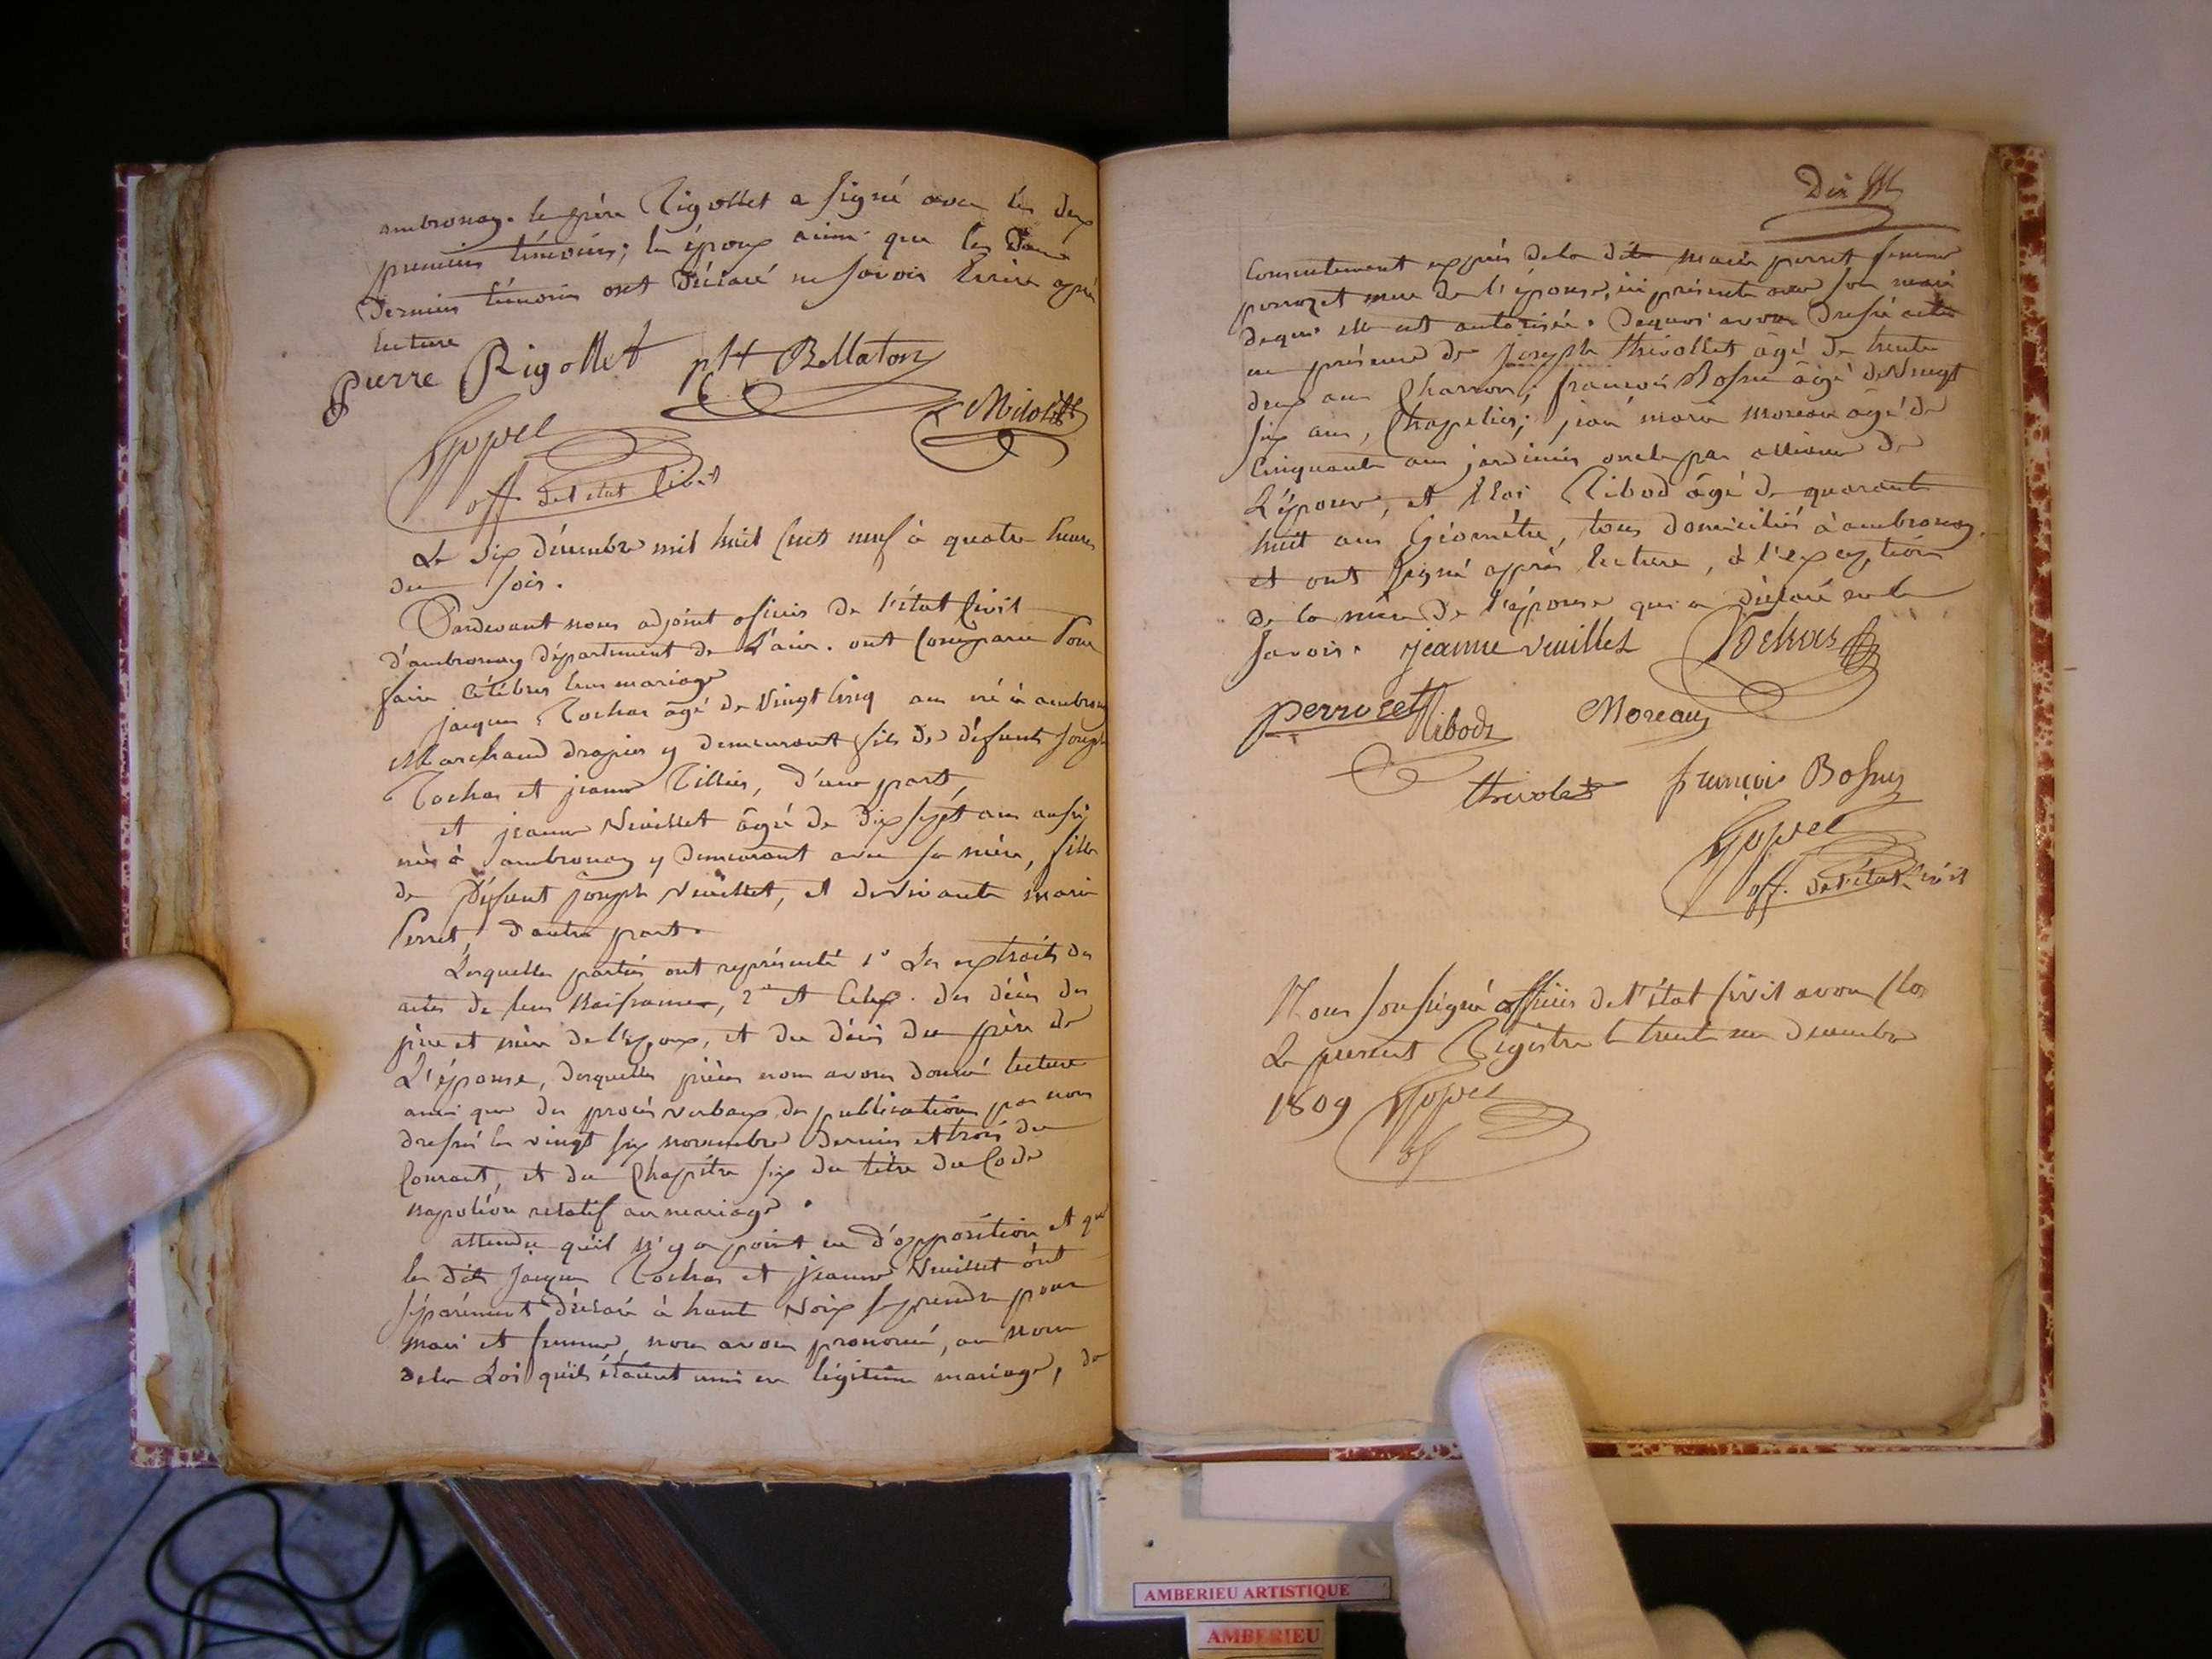 ambronay. le père Rigollet a signé avec les deux
premiers témoins; les époux ainsi que les deux
derniers témoins ont déclaré ne savoir Ecrire après
lecture
Pierre Rigollet pH Bellaton
Miloz
off. de l'etat Civil
Le Six décembre mil huit Cent neuf à quatre heures
du soir.
Pardevant nous adjoint officier de l'état Civil
d'ambronay département de L'ain. ont Comparu Pour
faire Célébrer leur mariage
jacques Rochas âgé de Vingt Cinq ans né à ambronay
Marchand drapier y demeurant fils de défunts Joseph
Rochas et jeanne Tillier, d'une part,
et jeanne Veuillet âgée de dix sept ans aussi
née à ambronay y demeurant avec sa mère, fille
de Défunt joseph Veuillet, et de Vivante marie
Perret, d'autre part.
Lesquelles parties ont représenté 1° Les extraits des
actes de leurs Naissances, 2° et des décès des
père et mère de l'époux, et du décès du père de
L'épouse, desquelles pièces nous avons donné lecture
ainsi que des procès verbaux de publications par nous
dressés les vingt six novembre dernier et trois du
Courant, et du Chapitre six du titre du Code
napoléon relatif au mariage.
attendu qu'il n'y a point eu d'opposition et que
les dits Jacques Rochas et jeanne Veuillet ont
séparément déclaré à haute Voix se prendre pour
mari et femme, nous avons prononcé, au nom
de la Loi qu'ils étaient unis en légitime mariage, du
Dix
Consentement exprès de la dite marie perret femme
perrozet mère de l'épouse, ici présente avec son mari
de qui elle est autorisée. Dequoi avons dressé acte
en présence de joseph thivollet âgé de trente
deux ans Charron; françois Bossu âgé de Vingt
six ans, Chapelier; jean marie moreau âgé de
Cinquante ans jardinier oncle par alliance de
L'épouse, et Eloi Ribod âgé de quarante
huit ans Géomètre, tous domiciliés à ambronay.
et ont signé après lecture, à l'exception
de la mère de l'épouse qui a déclaré ne le
savoir. jeanne veuillet Rochas
perrozet Ribod Moreau
thivolet françois Bossu
off. de l'état Civil
Nous soussigné officier de l'état Civil avons Clos
Le present Registre le trente un decembre
1809
AMBERIEU ARTISTIQUE
AMBERIEU